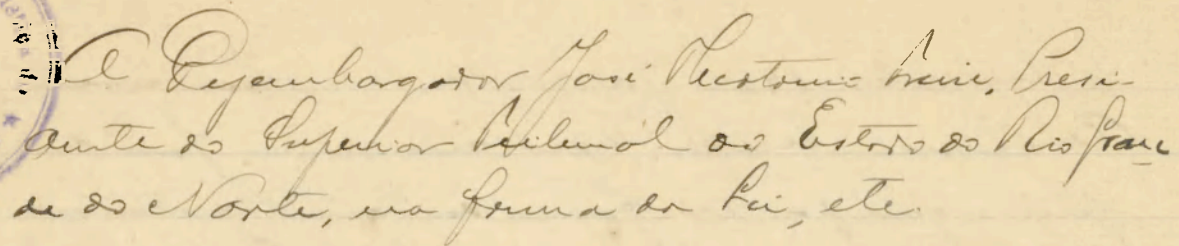 O Desembargador José Theotonio Freire, Presi-
dente do Superior Tribunal do Estado do Rio Gran-
de do Norte, na forma da Lei, etc.